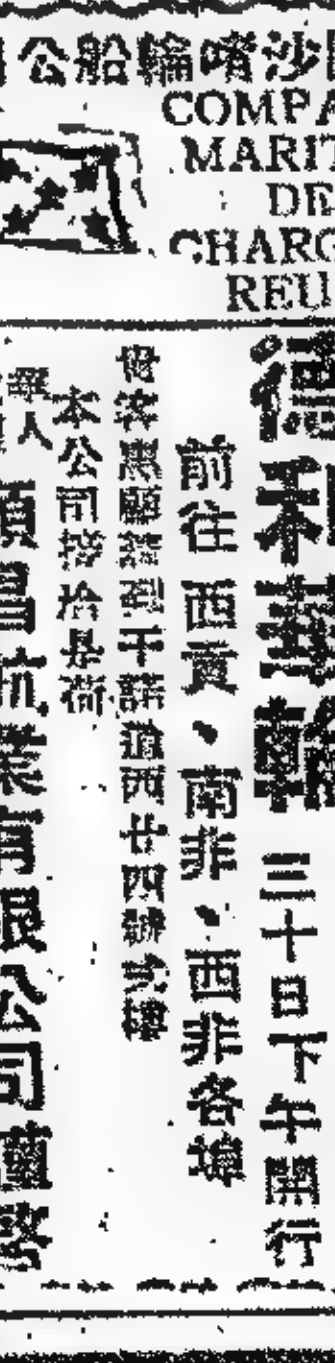 公船輪嘴沙
COMPA
MARIT
DE
CHARG
REU
三十日下午開行
前往西貢、南非、西非各埠
客惠顧請到干諾道西廿四號弍樓
本公司接洽是荷
順昌航業有限公司謹啟